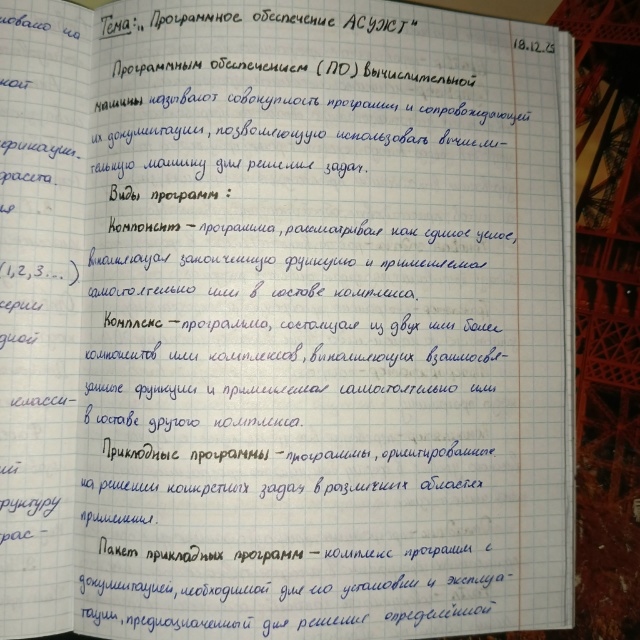 Тема: „Программное обеспечение АСУЖТ"
19.12.25
Программным обеспечением (ПО) вычислительной
машины называют совокупность программ и сопровождающей
их документации, позволяющую использовать вычисли-
тельную машину для решения задач.
Виды программ:
Компонент – программа, рассматривая как единое целое,
выполняющая законченную функцию и применяемая
самостоятельно или в составе комплекса.
Комплекс – программа, состоящая из двух или более
компонентов или комплексов, выполняющих взаимосвя-
занные функции и применяемая самостоятельно или
в составе другого комплекса.
Прикладные программы – программы, ориентированные
на решении конкретных задач в различных областях
применения.
Пакет прикладных программ – комплекс программ с
документацией, необходимой для его установки и эксплуа-
тации, предназначенный для решения определённой
новано на
ной
фикации.
(1,2,3...)
серии
дной
класси-
руктуру
рас-